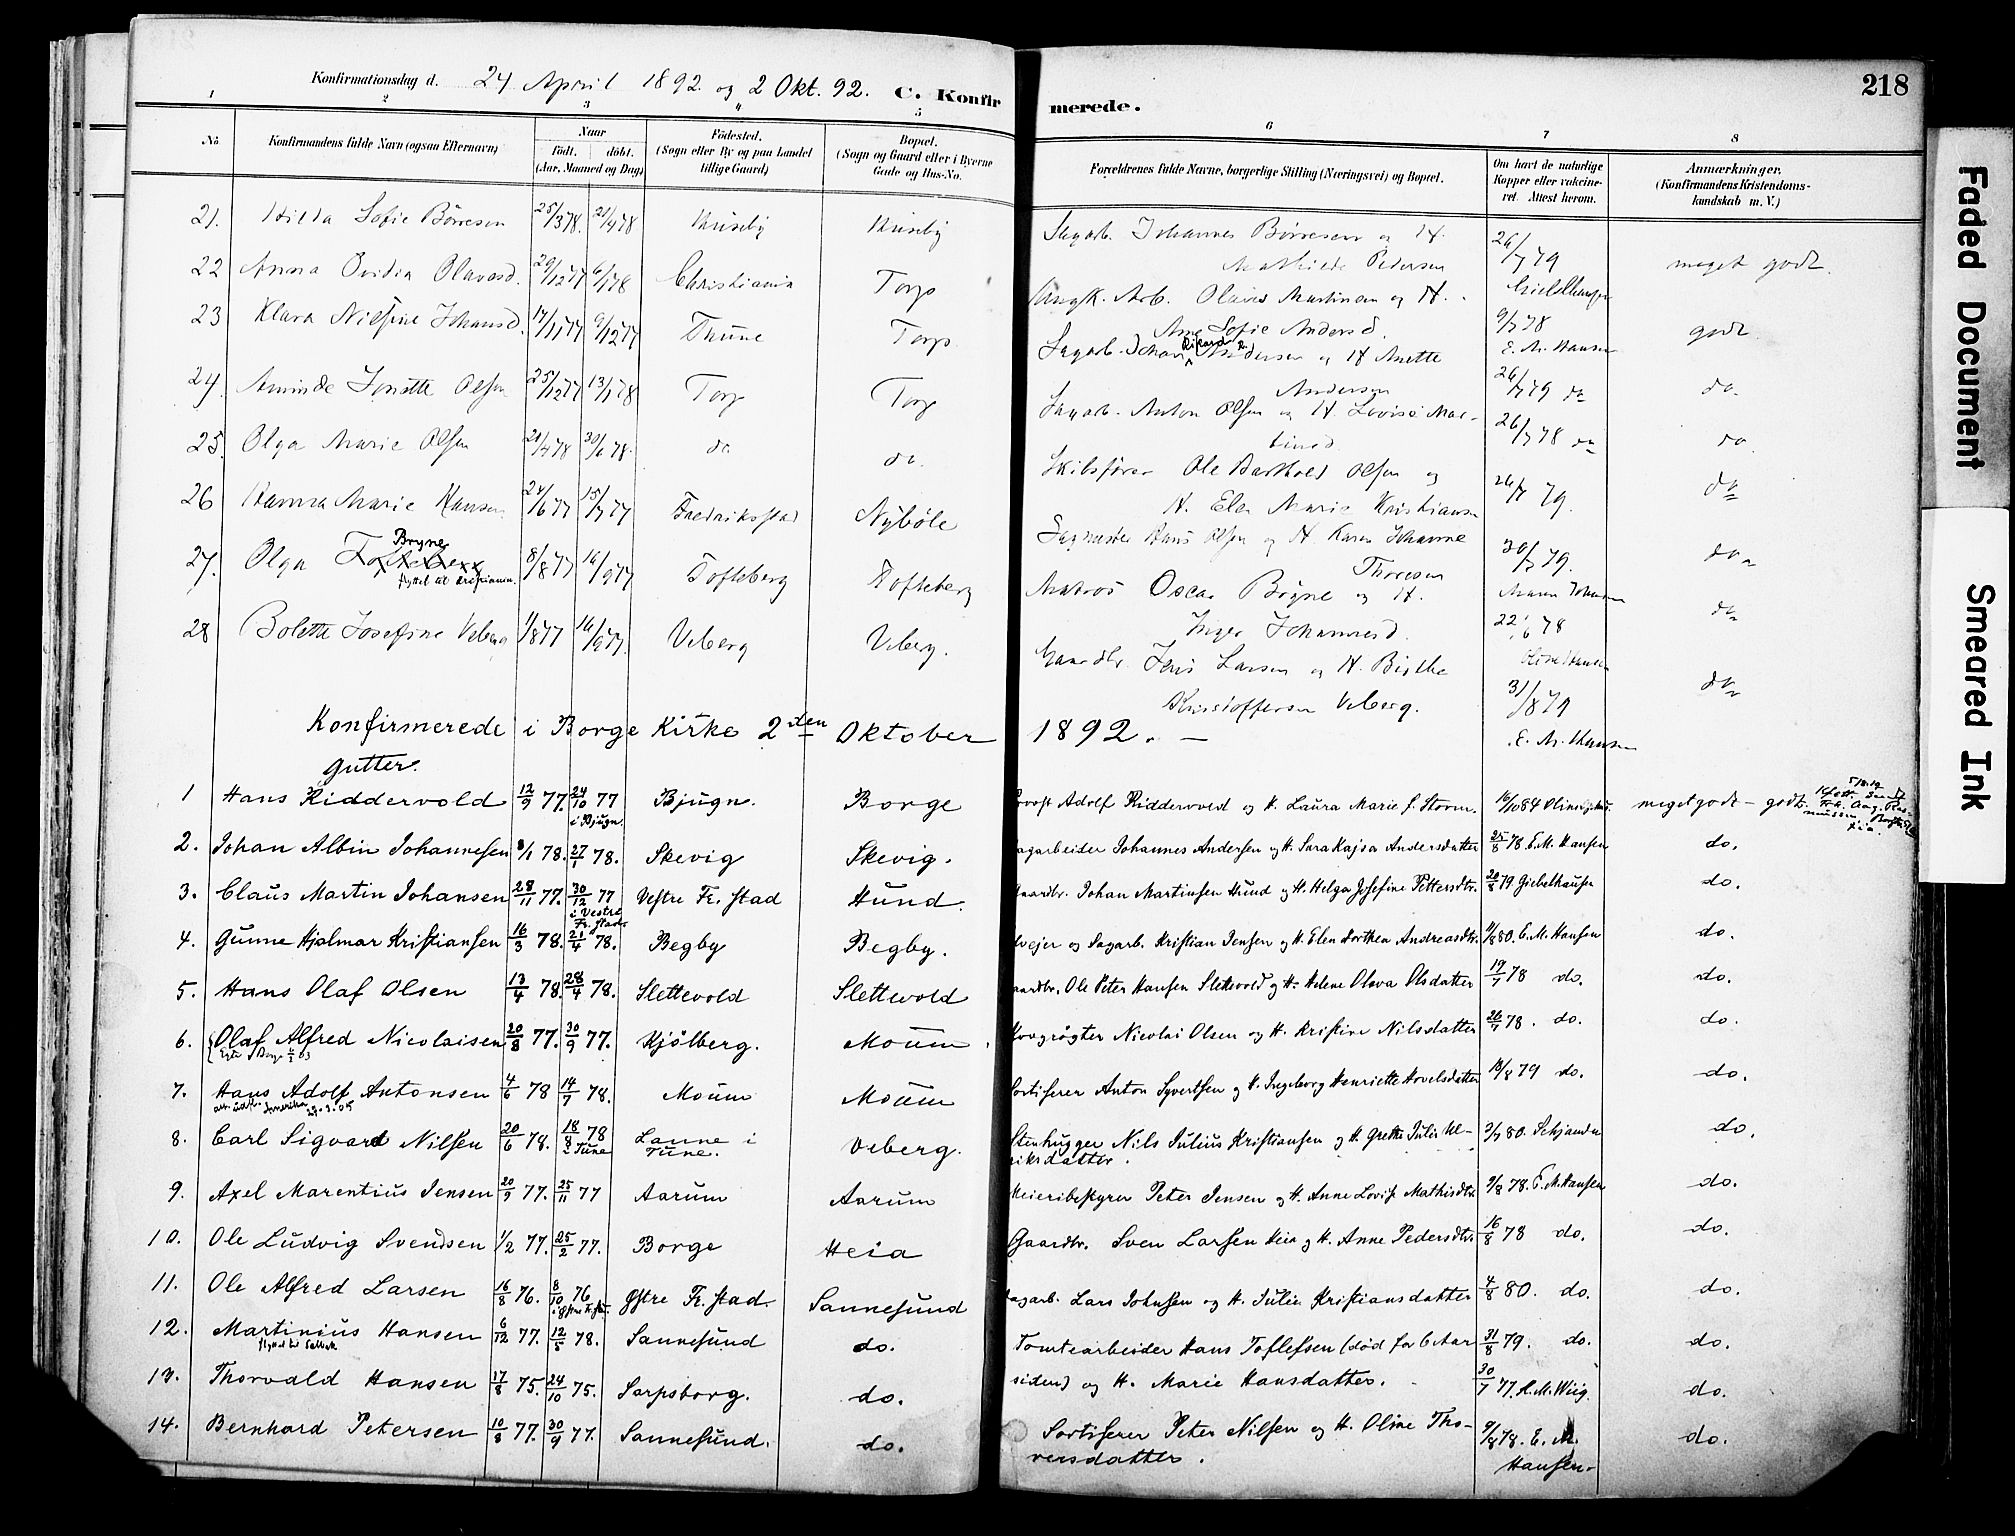 218
Konfirmationsdag d. 24 April 1892. og 2 Okt. 92. C. Konfirmerede.
1 2 3 4 5 6 7 8
No.
Konfirmandens fulde Navn (ogsaa Efternavn)
Naar
födt. döbt.
(Aar, Maaned og Dag)
Födested.
(Sogn eller By og paa Landet
tillige Gaard)
Bopæl.
(Sogn og Gaard eller i Byerne
Gade og Hus-No.
Forældrenes fulde Navne, borgerlige Stilling (Næringsvei) og Bopæl.
Om havt de naturlige
Kopper eller vakcine-
ret. Attest herom.
Anmærkninger.
(Konfirmandens Kristendoms-
kundskab m. V.)
21. Hilda Sofie Börresen 25/3 78. Huseby Huseby Sagarb. Johannes Börresen og H. Mathilde Pedersen 26/7 79 meget godt.
22 Anna Ovidia Olavesd. 29/12 77 6/1 78 Christiania Torp Ungk. Arb. Olaves Martinsen og H. Ane Sofie Andersd. 9/7 78 E. M. Hansen godt
23 Klara Nilsine Johansd. 17/11 77 9/12 77 Thune Torp Sagarb. Johan Rikard Andersen og H Anette Andersen 26/7 79 do do.
24. Aminde Jonette Olsen 25/12 77 13/1 78 Torp Torp Sagarb. Anton Olsen og H. Lovise Martinsd. 26/7 78 do do
25. Olga Marie Olsen 30/6 78. do do. Skibsförer Ole Barthold Olsen og H. Elen Marie Kristiansen 26/7 79. do
26 Hanna Marie Hansen 24/6 77 15/7 77 Fredriksstad Nyböle Sagmester Hans Olsen og H Karen Johanne Thoresen 30/7 79. do
27. Olga Tofteberg Bryne 8/8 77 16/9 77 Tofteberg Tofteberg Matros Oscar Bryne og H. Inger Johannesd. 22/6 78 do
flyttet til Kristiania.
28 Bolette Josefine Veberg 1/8 77 16/9 77. Veberg Veberg. Gaardbr. Jens Larsen og H. Birthe Kristoffersen Veberg. 31/8 79 E. M. Hansen do
Konfirmerede i Borge Kirke 2den Oktober 1892. —
Gutter.
1 Hans Riddervold 12/9 77. 24/10 77 i Bjugn. Bjugn. Borge Provst Adolf Riddervold og H. Laura Marie f. Storm. 16/10 84 meget godt - godt.
2. Johan Albin Johannesen 3/1 78. 27/1 78. Skevig Skevig. Sagarbeider Johannes Andersen og H. Sara Kajsa Andersdatter 25/8 78 E. M. Hansen do.
3. Claus Martin Johansen 28/11 77. 30/12 77 i Vestre Fr. stad. Vestre Fr. stad Hund. Gaardbr. Johan Martinsen Hund og H. Helga Josefine Pettersdtr. 20/8 79 Giebelhausen do.
4. Gunne Hjalmar Kristiansen 16/3 78. 21/4 78. Begby Begby. Selvejer og Sagarb. Kristian Jensen og H. Elen Dorthea Andreasdtr. 9/8 80. E. M. Hansen do.
5. Hans Olaf Olsen 13/4 78. 28/4 78. Slettevold Slettevold Gaardbr. Ole Peter Hansen Slettevold og H. Helene Olava Olsdatter 19/7 78 do. do.
6. Olaf Alfred Nicolaisen 20/8 77. 30/9 77. Kjölberg. Moum. Skovgrögter Nicolai Olsen og H. Kristine Nilsdatter 26/7 78. do. do.
7. Hans Adolf Antonsen 4/6 78 14/7 78. Moum Moum Sortiserer Anton Syvertsen og H. Ingeborg Henriette Hovelsdatter 18/8 79 do. do.
8. Carl Sigvard Nilsen 20/6 78. 18/8 78 i Tune Lanne i Tune. Veberg. Stenhugger Nils Julius Kristiansen og H. Grethe Julie Ulriksdatter. 3/7 80. do.
9. Axel Marentius Jensen 20/9 77. 25/11 77 Aarum Aarum Meieribestyrer Peter Jensen og H. Anne Lovise Mathisdtr. 9/8 78. E. M. Hansen do.
10. Ole Ludvig Svendsen 1/2 77. 25/2 77. Borge Heia Gaardbr. Sven Larsen Heia og H. Anne Pedersdtr. 16/8 78 do. do.
11. Ole Alfred Larsen 16/8 76. 8/10 76 i Østre Fr. std. Østre Fr. stad. Sannesund Sagarb. Lars Johnsen og H. Julie Kristiansdatter 4/8 80. do. do.
12. Martinius Hansen 6/12 77. 12/5 78. Sannesund do. Tomtearbeider Hans Toflefsen (död for 6 Aar siden) og H. Marie Hansdatter. 31/8 79. do. do.
13. Thorvald Hansen 17/8 75. 24/10 75. Sarpsborg. do. 30/7 77. H. M. Wiig. do.
14. Bernhard Petersen 10/8 77. 30/9 77. Sannesund. do. Sortiserer Peter Nilsen og H. Oline Thorersdatter. 9/8 78. E. M. Hansen. do.
Faded Document
Smeared Ink